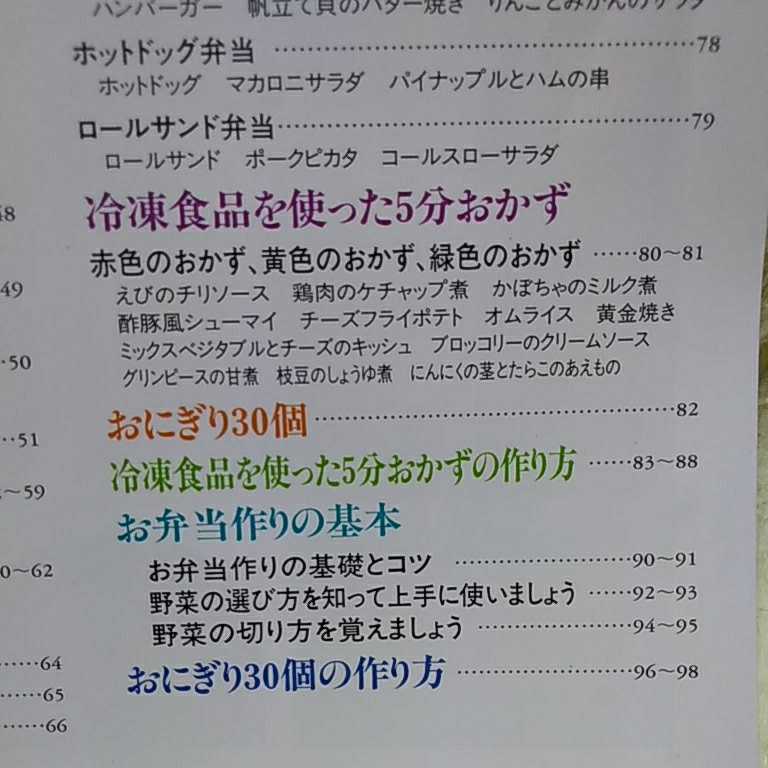 ハンバーガー 帆立て貝のバター焼き りんごとみかんのサラダ
ホットドッグ弁当 ……78
ホットドッグ マカロニサラダ パイナップルとハムの串
ロールサンド弁当……79
ロールサンド ポークピカタ コールスローサラダ
冷凍食品を使った5分おかず
赤色のおかず、黄色のおかず、緑色のおかず ……80〜81
えびのチリソース 鶏肉のケチャップ煮 かぼちゃのミルク煮
酢豚風シューマイ チーズフライポテト オムライス 黄金焼き
ミックスベジタブルとチーズのキッシュ ブロッコリーのクリームソース
グリンピースの甘煮 枝豆のしょうゆ煮 にんにくの茎とたらこのあえもの
おにぎり30個……82
冷凍食品を使った5分おかずの作り方 ……83〜88
お弁当作りの基本
お弁当作りの基礎とコツ ……90〜91
野菜の選び方を知って上手に使いましょう ……92〜93
野菜の切り方を覚えましょう ……94〜95
おにぎり30個の作り方 ……96〜98
48
49
50
…51
〜59
0〜62
……64
……65
……66